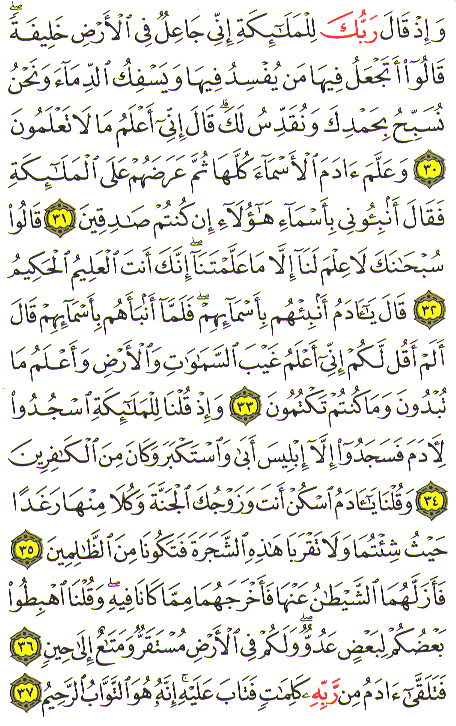 وَإِذْ قَالَ رَبُّكَ لِلْمَلَـٰٓئِكَةِ إِنِّى جَاعِلٌ فِى ٱلْأَرْضِ خَلِيفَةً ۖ
قَالُوٓا۟ أَتَجْعَلُ فِيهَا مَن يُفْسِدُ فِيهَا وَيَسْفِكُ ٱلدِّمَآءَ وَنَحْنُ
نُسَبِّحُ بِحَمْدِكَ وَنُقَدِّسُ لَكَ ۖ قَالَ إِنِّىٓ أَعْلَمُ مَا لَا تَعْلَمُونَ
٣٠ وَعَلَّمَ ءَادَمَ ٱلْأَسْمَآءَ كُلَّهَا ثُمَّ عَرَضَهُمْ عَلَى ٱلْمَلَـٰٓئِكَةِ
فَقَالَ أَنۢبِـُٔونِى بِأَسْمَآءِ هَـٰٓؤُلَآءِ إِن كُنتُمْ صَـٰدِقِينَ ٣١ قَالُوا۟
سُبْحَـٰنَكَ لَا عِلْمَ لَنَآ إِلَّا مَا عَلَّمْتَنَآ ۖ إِنَّكَ أَنتَ ٱلْعَلِيمُ ٱلْحَكِيمُ
٣٢ قَالَ يَـٰٓـَٔادَمُ أَنۢبِئْهُم بِأَسْمَآئِهِمْ ۖ فَلَمَّآ أَنۢبَأَهُم بِأَسْمَآئِهِمْ قَالَ
أَلَمْ أَقُل لَّكُمْ إِنِّىٓ أَعْلَمُ غَيْبَ ٱلسَّمَـٰوَٰتِ وَٱلْأَرْضِ وَأَعْلَمُ مَا
تُبْدُونَ وَمَا كُنتُمْ تَكْتُمُونَ ٣٣ وَإِذْ قُلْنَا لِلْمَلَـٰٓئِكَةِ ٱسْجُدُوا۟
لِـَٔادَمَ فَسَجَدُوٓا۟ إِلَّآ إِبْلِيسَ أَبَىٰ وَٱسْتَكْبَرَ وَكَانَ مِنَ ٱلْكَـٰفِرِينَ
٣٤ وَقُلْنَا يَـٰٓـَٔادَمُ ٱسْكُنْ أَنتَ وَزَوْجُكَ ٱلْجَنَّةَ وَكُلَا مِنْهَا رَغَدًا
حَيْثُ شِئْتُمَا وَلَا تَقْرَبَا هَـٰذِهِ ٱلشَّجَرَةَ فَتَكُونَا مِنَ ٱلظَّـٰلِمِينَ ٣٥
فَأَزَلَّهُمَا ٱلشَّيْطَـٰنُ عَنْهَا فَأَخْرَجَهُمَا مِمَّا كَانَا فِيهِ ۖ وَقُلْنَا ٱهْبِطُوا۟
بَعْضُكُمْ لِبَعْضٍ عَدُوٌّ ۖ وَلَكُمْ فِى ٱلْأَرْضِ مُسْتَقَرٌّ وَمَتَـٰعٌ إِلَىٰ حِينٍ ٣٦
فَتَلَقَّىٰٓ ءَادَمُ مِن رَّبِّهِۦ كَلِمَـٰتٍ فَتَابَ عَلَيْهِ ۚ إِنَّهُۥ هُوَ ٱلتَّوَّابُ ٱلرَّحِيمُ ٣٧